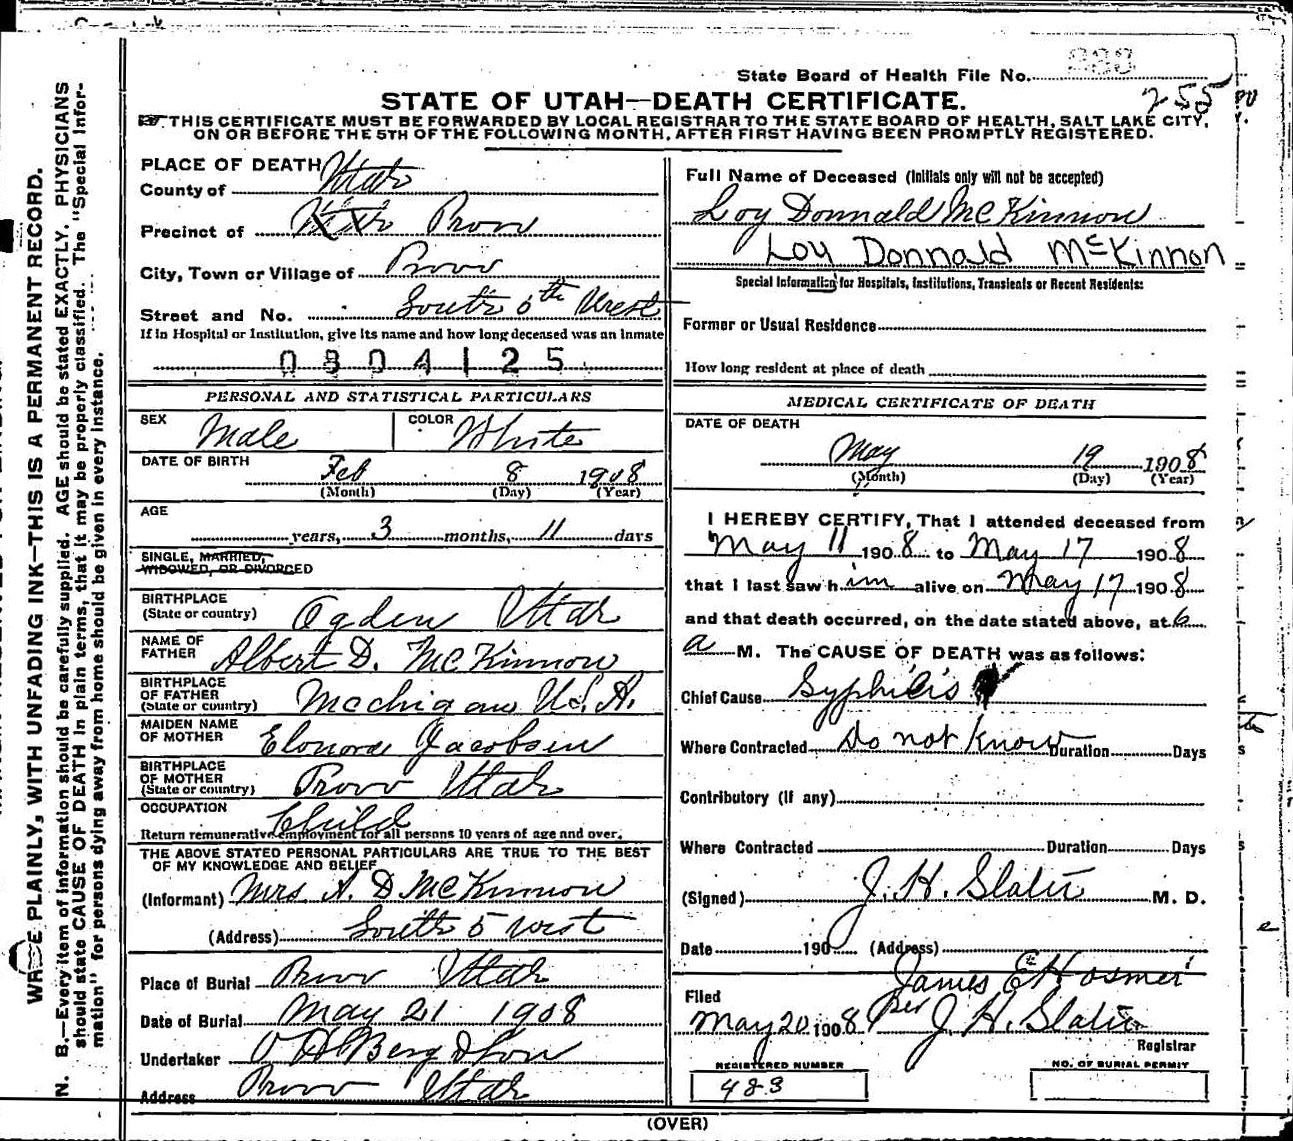 State Board of Health File No.
255
STATE OF UTAH—DEATH CERTIFICATE.
THIS CERTIFICATE MUST BE FORWARDED BY LOCAL REGISTRAR TO THE STATE BOARD OF HEALTH, SALT LAKE CITY,
ON OR BEFORE THE 5TH OF THE FOLLOWING MONTH, AFTER FIRST HAVING BEEN PROMPTLY REGISTERED.
PLACE OF DEATH
County of Utah
Precinct of Provo
City, Town or Village of Provo
Street and No. South 5th West
If in Hospital or Institution, give its name and how long deceased was an inmate
0304125
PERSONAL AND STATISTICAL PARTICULARS
SEX Male COLOR White
DATE OF BIRTH Feb 8 1908
(Month) (Day) (Year)
AGE
years, 3 months, 11 days
SINGLE, MARRIED,
WIDOWED, OR DIVORCED
BIRTHPLACE
(State or country) Ogden Utah
NAME OF
FATHER Albert D. McKinnon
BIRTHPLACE
OF FATHER
(State or country) Mechigan U.S.A.
MAIDEN NAME
OF MOTHER Elonora Jacobsen
BIRTHPLACE
OF MOTHER
(State or country) Provo Utah
OCCUPATION Child
Return remunerative employment for all persons 10 years of age and over.
THE ABOVE STATED PERSONAL PARTICULARS ARE TRUE TO THE BEST
OF MY KNOWLEDGE AND BELIEF
(Informant) Mrs A. D McKinnon
(Address) South 5 West
Place of Burial Provo Utah
Date of Burial May 21 1908
Undertaker O H Berg & Son
Address Provo Utah
Full Name of Deceased (Initials only will not be accepted)
Loy Donnald McKinnon
Loy Donnald McKinnon
Special Information for Hospitals, Institutions, Transients or Recent Residents:
Former or Usual Residence
How long resident at place of death
MEDICAL CERTIFICATE OF DEATH
DATE OF DEATH
May 19 1908
(Month) (Day) (Year)
I HEREBY CERTIFY, That I attended deceased from
May 11 1908 to May 17 1908
that I last saw him alive on May 17 1908
and that death occurred, on the date stated above, at 6
a M. The CAUSE OF DEATH was as follows:
Chief Cause Syphilis
Where Contracted Do not know Duration Days
Contributory (If any)
Where Contracted Duration Days
(Signed) J. H. Slater M. D.
Date 190 (Address)
Filed James E Hosmer
May 20 1908 per J. H. Slater
Registrar
REGISTERED NUMBER NO. OF BURIAL PERMIT
483
(OVER)
PLAINLY, WITH UNFADING INK—THIS IS A PERMANENT RECORD.
N. B.—Every item of information should be carefully supplied. AGE should be stated EXACTLY. PHYSICIANS
should state CAUSE OF DEATH in plain terms, that it may be properly classified. The "Special Infor-
mation" for persons dying away from home should be given in every instance.